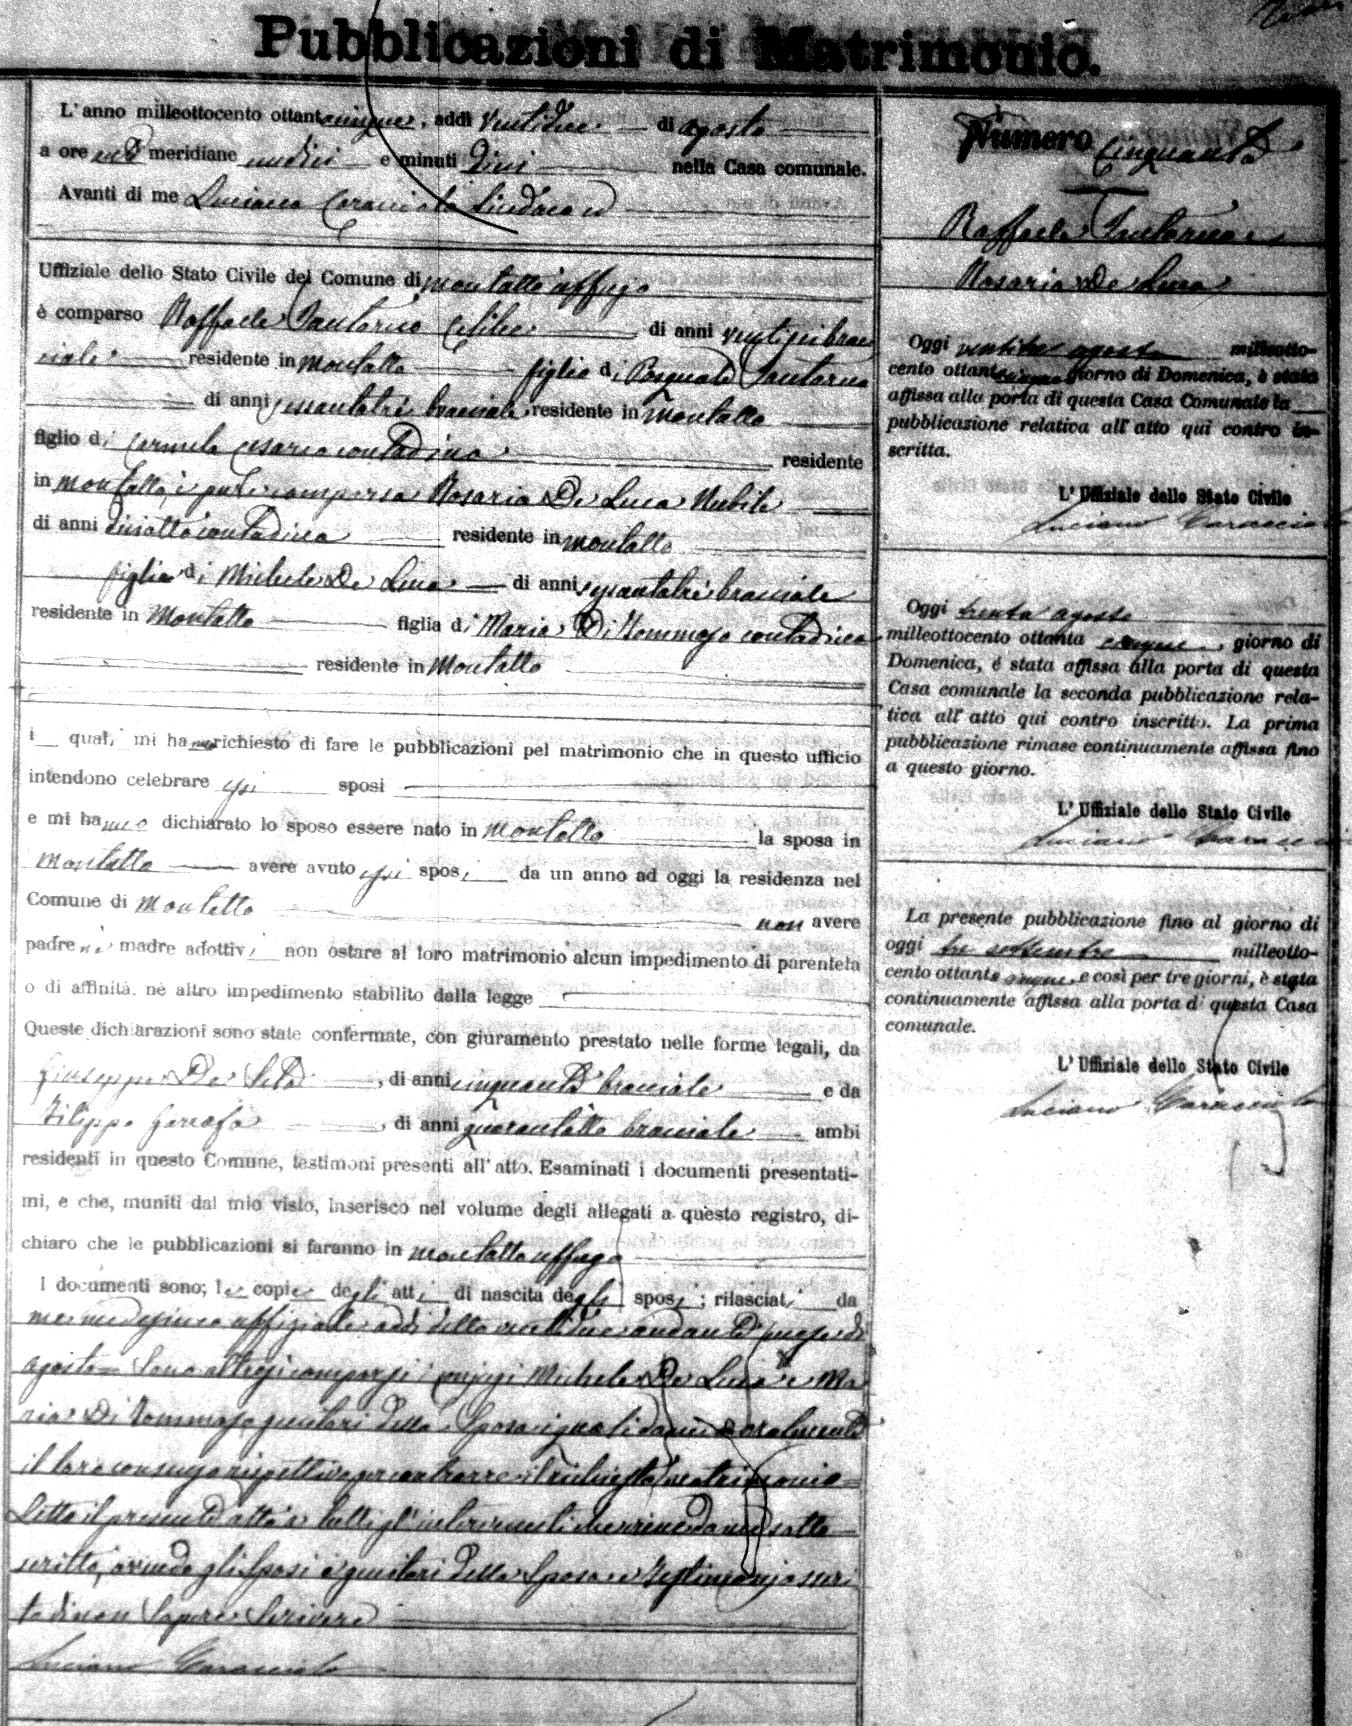 Pubblicazioni di Matrimonio.
L'anno milleottocento ottantacinque, addì ventidue di agosto
a ore ant meridiane undici e minuti dieci nella Casa comunale.
Avanti di me Luciano Caracciolo Sindaco ed
Uffiziale dello Stato Civile del Comune di Montalto Uffugo
è comparso Raffaele Santoruo celibe di anni ventisei brac
ciale residente in Montalto figlio di Pasquale Santoruo
di anni sessantatre bracciale residente in Montalto
figlio di Carmela Cesario contadina residente
in Montalto, e pure comparsa Rosaria De Luca Nubile
di anni diciotto contadina residente in Montalto
figlia di Michele De Luca di anni sessantatre bracciale
residente in Montalto figlia di Maria Di Tommaso contadina
residente in Montalto
i quali mi hanno richiesto di fare le pubblicazioni pel matrimonio che in questo ufficio
intendono celebrare essi sposi
e mi hanno dichiarato lo sposo essere nato in Montalto la sposa in
Montalto avere avuto essi sposi da un anno ad oggi la residenza nel
Comune di Montalto non avere
padre nè madre adottivi non ostare al loro matrimonio alcun impedimento di parentela
o di affinità, nè altro impedimento stabilito dalla legge
Queste dichiarazioni sono state confermate, con giuramento prestato nelle forme legali, da
Giuseppe De Seta, di anni cinquanta bracciale e da
Filippo Garrafa, di anni quarantotto bracciale ambi
residenti in questo Comune, testimoni presenti all'atto. Esaminati i documenti presentati-
mi, e che, muniti dal mio visto, inserisco nel volume degli allegati a questo registro, di-
chiaro che le pubblicazioni si faranno in Montalto Uffugo
I documenti sono; le copie degli atti di nascita degli sposi; rilasciati da
me medesimo uffiziale addì detto ventidue andante mese di
agosto = Sono altresi comparsi i conjugi Michele De Luca e Ma
ria Di Tommaso genitori della Sposa i quali danno oralmente
il loro consenso rispettivo per contrarre il richiesto matrimonio =
Letto il presente atto a tutti gl'intervenuti che viene da me sotto
scritto, avendo gli sposi i genitori della Sposa e Testimonj asseri
to di non Sapere Scrivere
Luciano Caracciolo
Numero Cinquanta
Raffaele Santoruo e
Rosaria De Luca
Oggi ventitre agosto milleotto-
cento ottantacinque giorno di Domenica, è stata
affissa alla porta di questa Casa Comunale la
pubblicazione relativa all'atto qui contro in-
scritta.
L'Uffiziale dello Stato Civile
Luciano Caracciolo
Oggi trenta agosto
milleottocento ottanta cinque, giorno di
Domenica, è stata affissa alla porta di questa
Casa comunale la seconda pubblicazione rela-
tiva all'atto qui contro inscritto. La prima
pubblicazione rimase continuamente affissa fino
a questo giorno.
L'Uffiziale dello Stato Civile
Luciano Caracciolo
La presente pubblicazione fino al giorno di
oggi tre settembre milleotto-
cento ottanta cinque, e così per tre giorni, è stata
continuamente affissa alla porta di questa Casa
comunale.
L'Uffiziale dello Stato Civile
Luciano Caracciolo